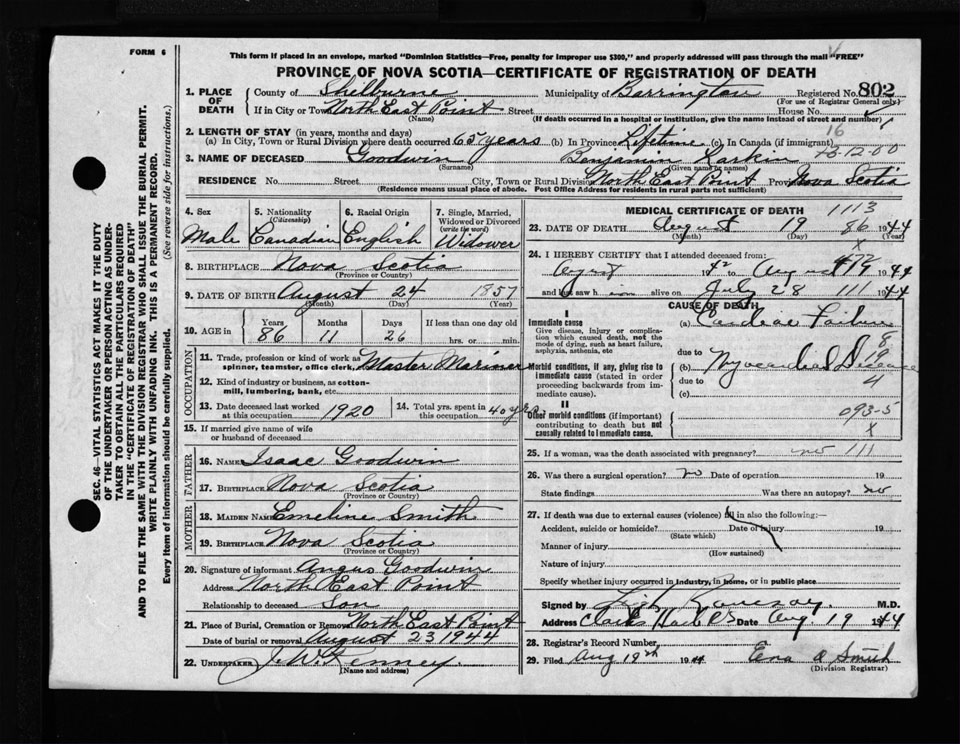 FORM 6
This form if placed in an envelope, marked "Dominion Statistics—Free, penalty for improper use $300," and properly addressed will pass through the mail "FREE"
PROVINCE OF NOVA SCOTIA—CERTIFICATE OF REGISTRATION OF DEATH
1. PLACE OF DEATH County of Shelburne Municipality of Barrington Registered No. 802
(For use of Registrar General only)
If in City or Town North East Point Street House No.
(Name) (If death occurred in a hospital or institution, give the name instead of street and number)
2. LENGTH OF STAY (in years, months and days) 16
(a) In City, Town or Rural Division where death occurred 65 years (b) In Province Lifetime (c) In Canada (if immigrant)
3. NAME OF DECEASED Goodwin Benjamin Larkin 15-12-00
(Surname) (Given name or names)
RESIDENCE No. Street City, Town or Rural Division North East Point Province Nova Scotia
(Residence means usual place of abode. Post Office Address for residents in rural parts not sufficient)
4. Sex Male
5. Nationality (Citizenship) Canadian
6. Racial Origin English
7. Single, Married, Widowed or Divorced (write the word) Widower
8. BIRTHPLACE Nova Scotia
(Province or Country)
9. DATE OF BIRTH August 24 1857
(Month) (Day) (Year)
10. AGE in Years 86 Months 11 Days 26 If less than one day old hrs. or min.
OCCUPATION
11. Trade, profession or kind of work as spinner, teamster, office clerk, Master Mariner
12. Kind of industry or business, as cotton-mill, lumbering, bank, etc.
13. Date deceased last worked at this occupation 1920
14. Total yrs. spent in this occupation 40 yrs
15. If married give name of wife or husband of deceased
FATHER
16. Name Isaac Goodwin
17. Birthplace Nova Scotia
(Province or Country)
MOTHER
18. Maiden Name Emeline Smith
19. Birthplace Nova Scotia
(Province or Country)
20. Signature of informant Angus Goodwin
Address North East Point
Relationship to deceased Son
21. Place of Burial, Cremation or Removal North East Point
Date of burial or removal August 23 1944
22. UNDERTAKER J. W. Kenney.
(Name and address)
MEDICAL CERTIFICATE OF DEATH 1113
23. DATE OF DEATH August 19 86 1944
(Month) (Day) (Year)
x
24. I HEREBY CERTIFY that I attended deceased from:
1942 to August 19 1944
and last saw h im alive on July 28 111 1944
CAUSE OF DEATH
I
Immediate cause
Give disease, injury or complication which caused death, not the mode of dying, such as heart failure, asphyxia, asthenia, etc
(a) Cardiac Failure
8
due to
Morbid conditions, if any, giving rise to immediate cause (stated in order proceeding backwards from immediate cause).
(b) Myocardial Disease
19
due to 4
(c)
II
Other morbid conditions (important) contributing to death but not causally related to immediate cause.
093-5
x
25. If a woman, was the death associated with pregnancy? no 111
26. Was there a surgical operation? no Date of operation 19
State findings Was there an autopsy? no
27. If death was due to external causes (violence) fill in also the following:—
Accident, suicide or homicide? Date of injury 19
(State which)
Manner of injury
(How sustained)
Nature of injury
Specify whether injury occurred in industry, in home, or in public place
Signed by M.D.
Address Clarks Harb NS Date Aug. 19 1944
28. Registrar's Record Number
29. Filed Aug 19th 1944 Eva A Smith
(Division Registrar)
SEC. 46—VITAL STATISTICS ACT MAKES IT THE DUTY
OF THE UNDERTAKER OR PERSON ACTING AS UNDER-
TAKER TO OBTAIN ALL THE PARTICULARS REQUIRED
IN THE "CERTIFICATE OF REGISTRATION OF DEATH"
AND TO FILE THE SAME WITH THE DIVISION REGISTRAR WHO SHALL ISSUE THE BURIAL PERMIT.
WRITE PLAINLY WITH UNFADING INK. THIS IS A PERMANENT RECORD.
Every item of information should be carefully supplied. (See reverse side for instructions.)